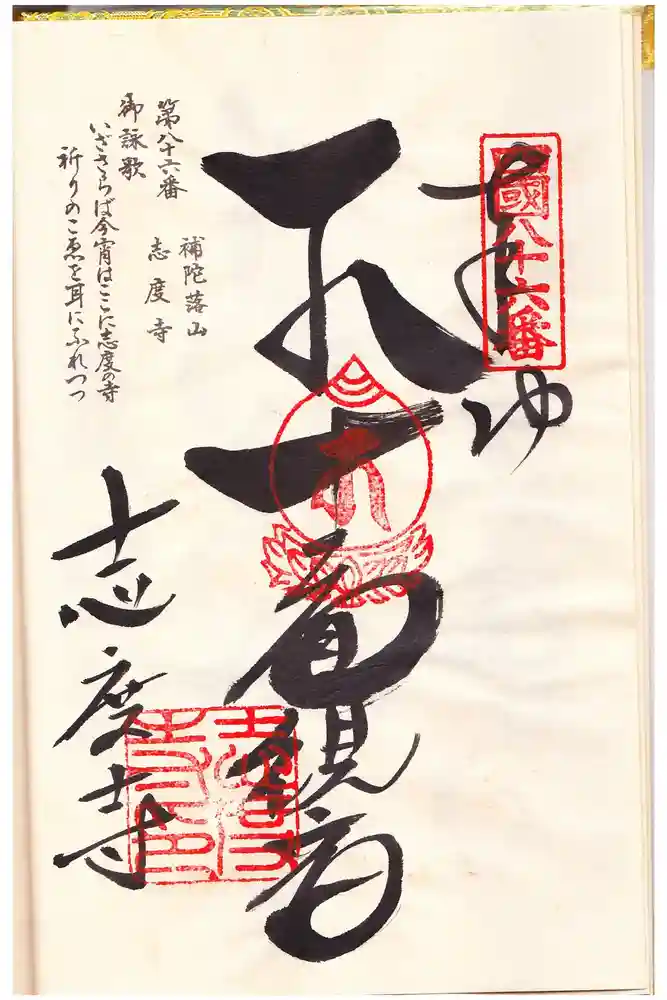 四國八十六番
面観音
志度寺
第八十六番
補陀落山
志度寺
御詠歌
いざさらば今宵はここに志度の寺
祈りのこゑを耳にふれつつ